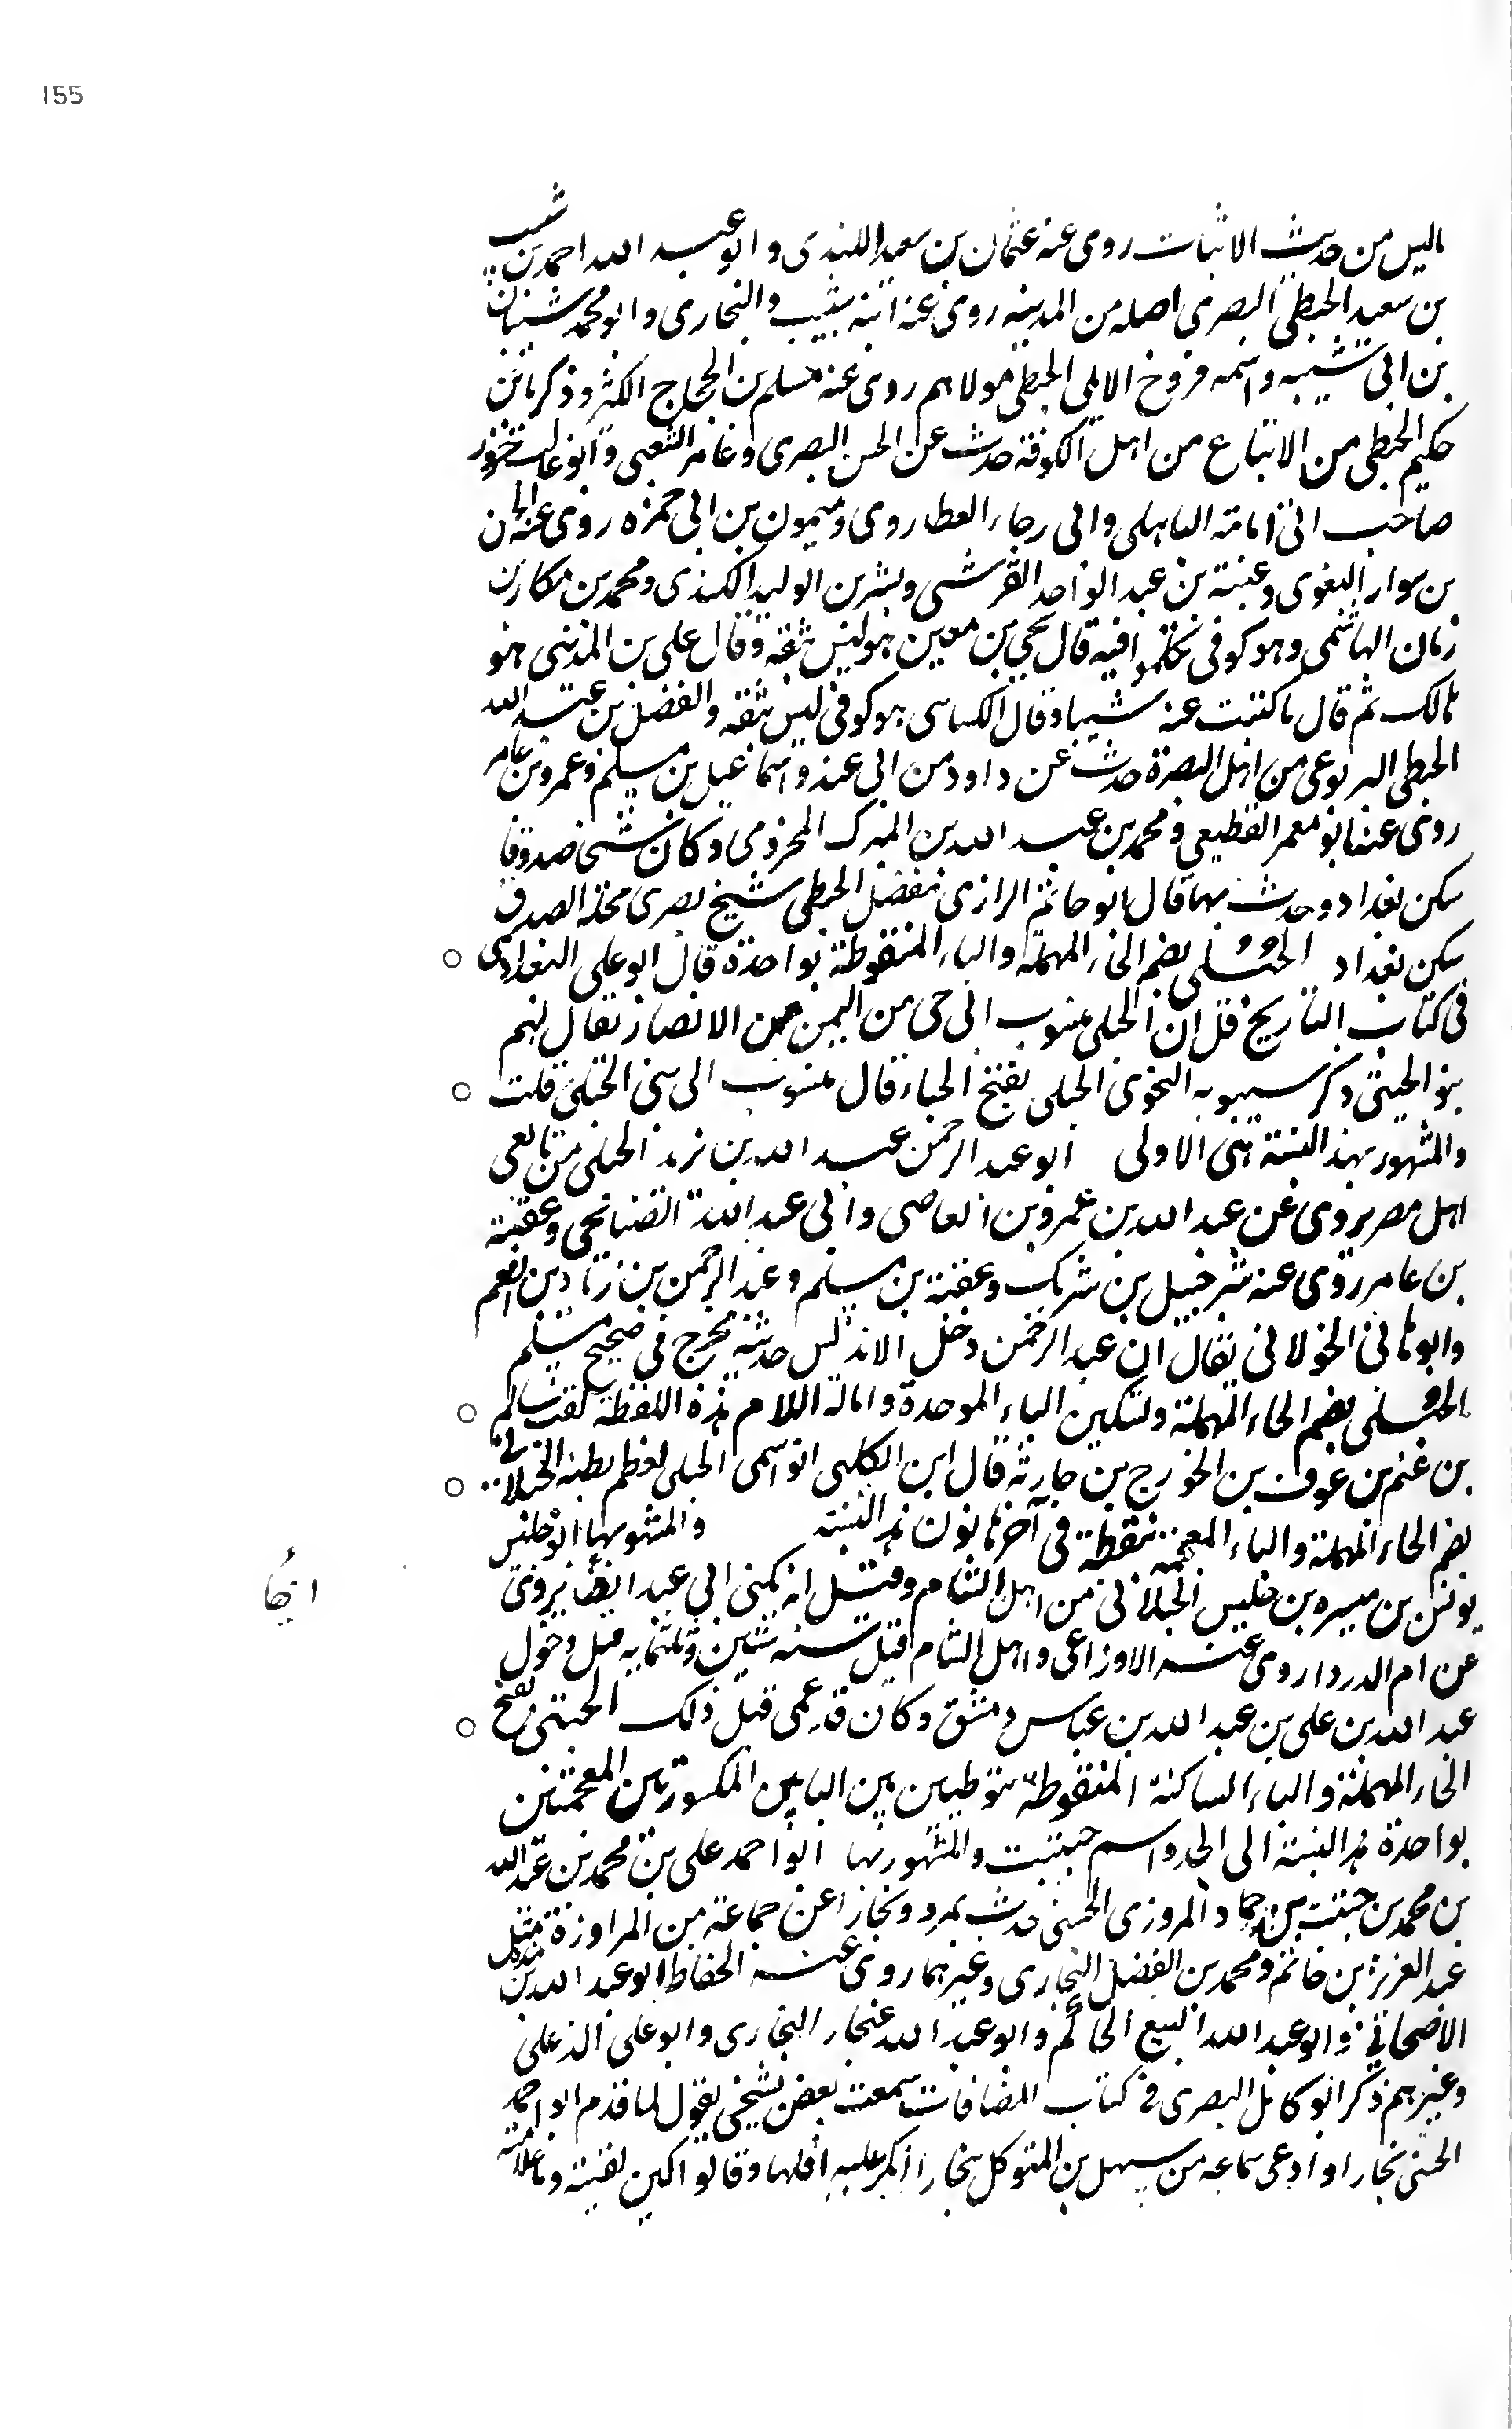 155
ما ليس من حديث الاثبات روى عنه عثمان بن سعيد الكندى وابو عبد الله احمد بن شبيب
بن سعيد الحبطى البصرى اصله من المدينه روى عنه ابنه شبيب والبخارى وابو محمد شيبان
بن ابى شيبه واسمه فروخ الابلى الحبطى مولاهم روى عنه مسلم بن الحجاج الكثير وذكر يا بن
حكيم الحبطى من الاتباع من اهل الكوفة حدث عن الحسن البصرى وعامر الشعبى وابو غالب حزور
صاحب ابى امامة الباهلى وابى رجاء العطاروى وميمون بن ابى حمزه روى عنه
بن سوار البغوى وعنبسة بن عبد الواحد القرشى وبشر بن الوليد الكندى ومحمد بن بكار بن
زمان الهاشمى وهو كوفى تكلموا فيه قال يحيى بن معين هو ليس بثقه وقال على بن المدينى هو
هالك ثم قال ما كتبت عنه شيا وقال النساى هو كوفى ليس بثقه والفضل بن عبد الله
الحبطى اليربوعى من اهل البصرة حدث عن داود بن ابى هند واسماعيل بن مسلم وعمرو بن عامر
روى عنه ابو معمر القطيعى ومحمد بن عبد الله بن المبرك المخرمى وكان شيخ صدوقا
سكن بغداد وحدث بها قال ابو حاتم الرازى مفضل الحبطى شيخ بصرى محله الصدق
سكن بغداد الحبلى بضم الحاء المهملة والباء المنقوطة بواحدة قال ابو على البغدادى
فى كتاب التاريخ قال ان الحبلى منسوب الى حى من اليمن من الانصار يقال لهم
بنو الحبلى ذكر سيبويه النحوى الحبلى بفتح الباء قال منسوب الى بنى الحبلى قلت
والمشهور بهذا النسبة هى الاولى ابو عبد الرحمن عبد الله بن يزيد الحبلى من تابعى
اهل مصر يروى عن عبد الله بن عمرو بن العاصى وابى عبد الله الصنابحى وعقبة
بن عامر روى عنه شرحبيل بن شريك وعقبة بن مسلم وعبد الرحمن بن زياد بن انعم
وابو هانى الخولانى يقال ان عبد الرحمن دخل الاندلس حديثه مخرج فى صحيح مسلم
الحبلى بضم الحاء المهملة وتسكين الباء الموحدة وامالة اللام هذه اللفظة لقب سالم
بن غنم بن عوف بن الخزرج بن حارثه قال ابن الكلبى انما سمى الحبلى لعظم بطنه الحبلانى
بضم الحاء المهملة والباء المعجمة بنقطة فى آخرها نون هذه النسبة والمشهور بها ابو حلبس
يونس بن ميسره بن حلبس الحبلانى من اهل الشام وقيل انه يكنى ابى عبد ايضا يروى
ايضا
عن ام الدردا روى عنه الاوزاعى واهل الشام قتل سنه ثنين وثلثمايه قبل دخول
عبد الله بن على بن عبد الله بن عباس دمشق وكان قد عمى قبل ذلك الحبيبى بفتح
الحاء المهملة والباء الساكنة المنقوطة بنقطتين بين البايين المكسورتين المعجمتين
بواحدة هذه النسبة الى الجد واسم حبيب والمشهور بها ابو احمد على بن محمد بن عبد الله
بن محمد بن حبيب بن حماد المروزى الحبيبى حدث بمرو وبخارا عن جماعة من المراوزة مثل
عبد العزيز بن حاتم ومحمد بن الفضل البخارى وغيرهما روى عنه الحفاظ ابو عبد الله بن منده
الاصبهانى وابو عبد الله البيع الحاكم وابو عبد الله غنجار البخارى وابو على الذهلى
وغيرهم ذكر ابو كامل البصرى فى كتاب المضافات سمعت بعض شيخى يقول لما قدم ابو احمد
الحبيبى بخارا وادعى سماعه من سهل بن المتوكل بخارا انكر عليه اهلها وقالوا اين لقيته وما علامته